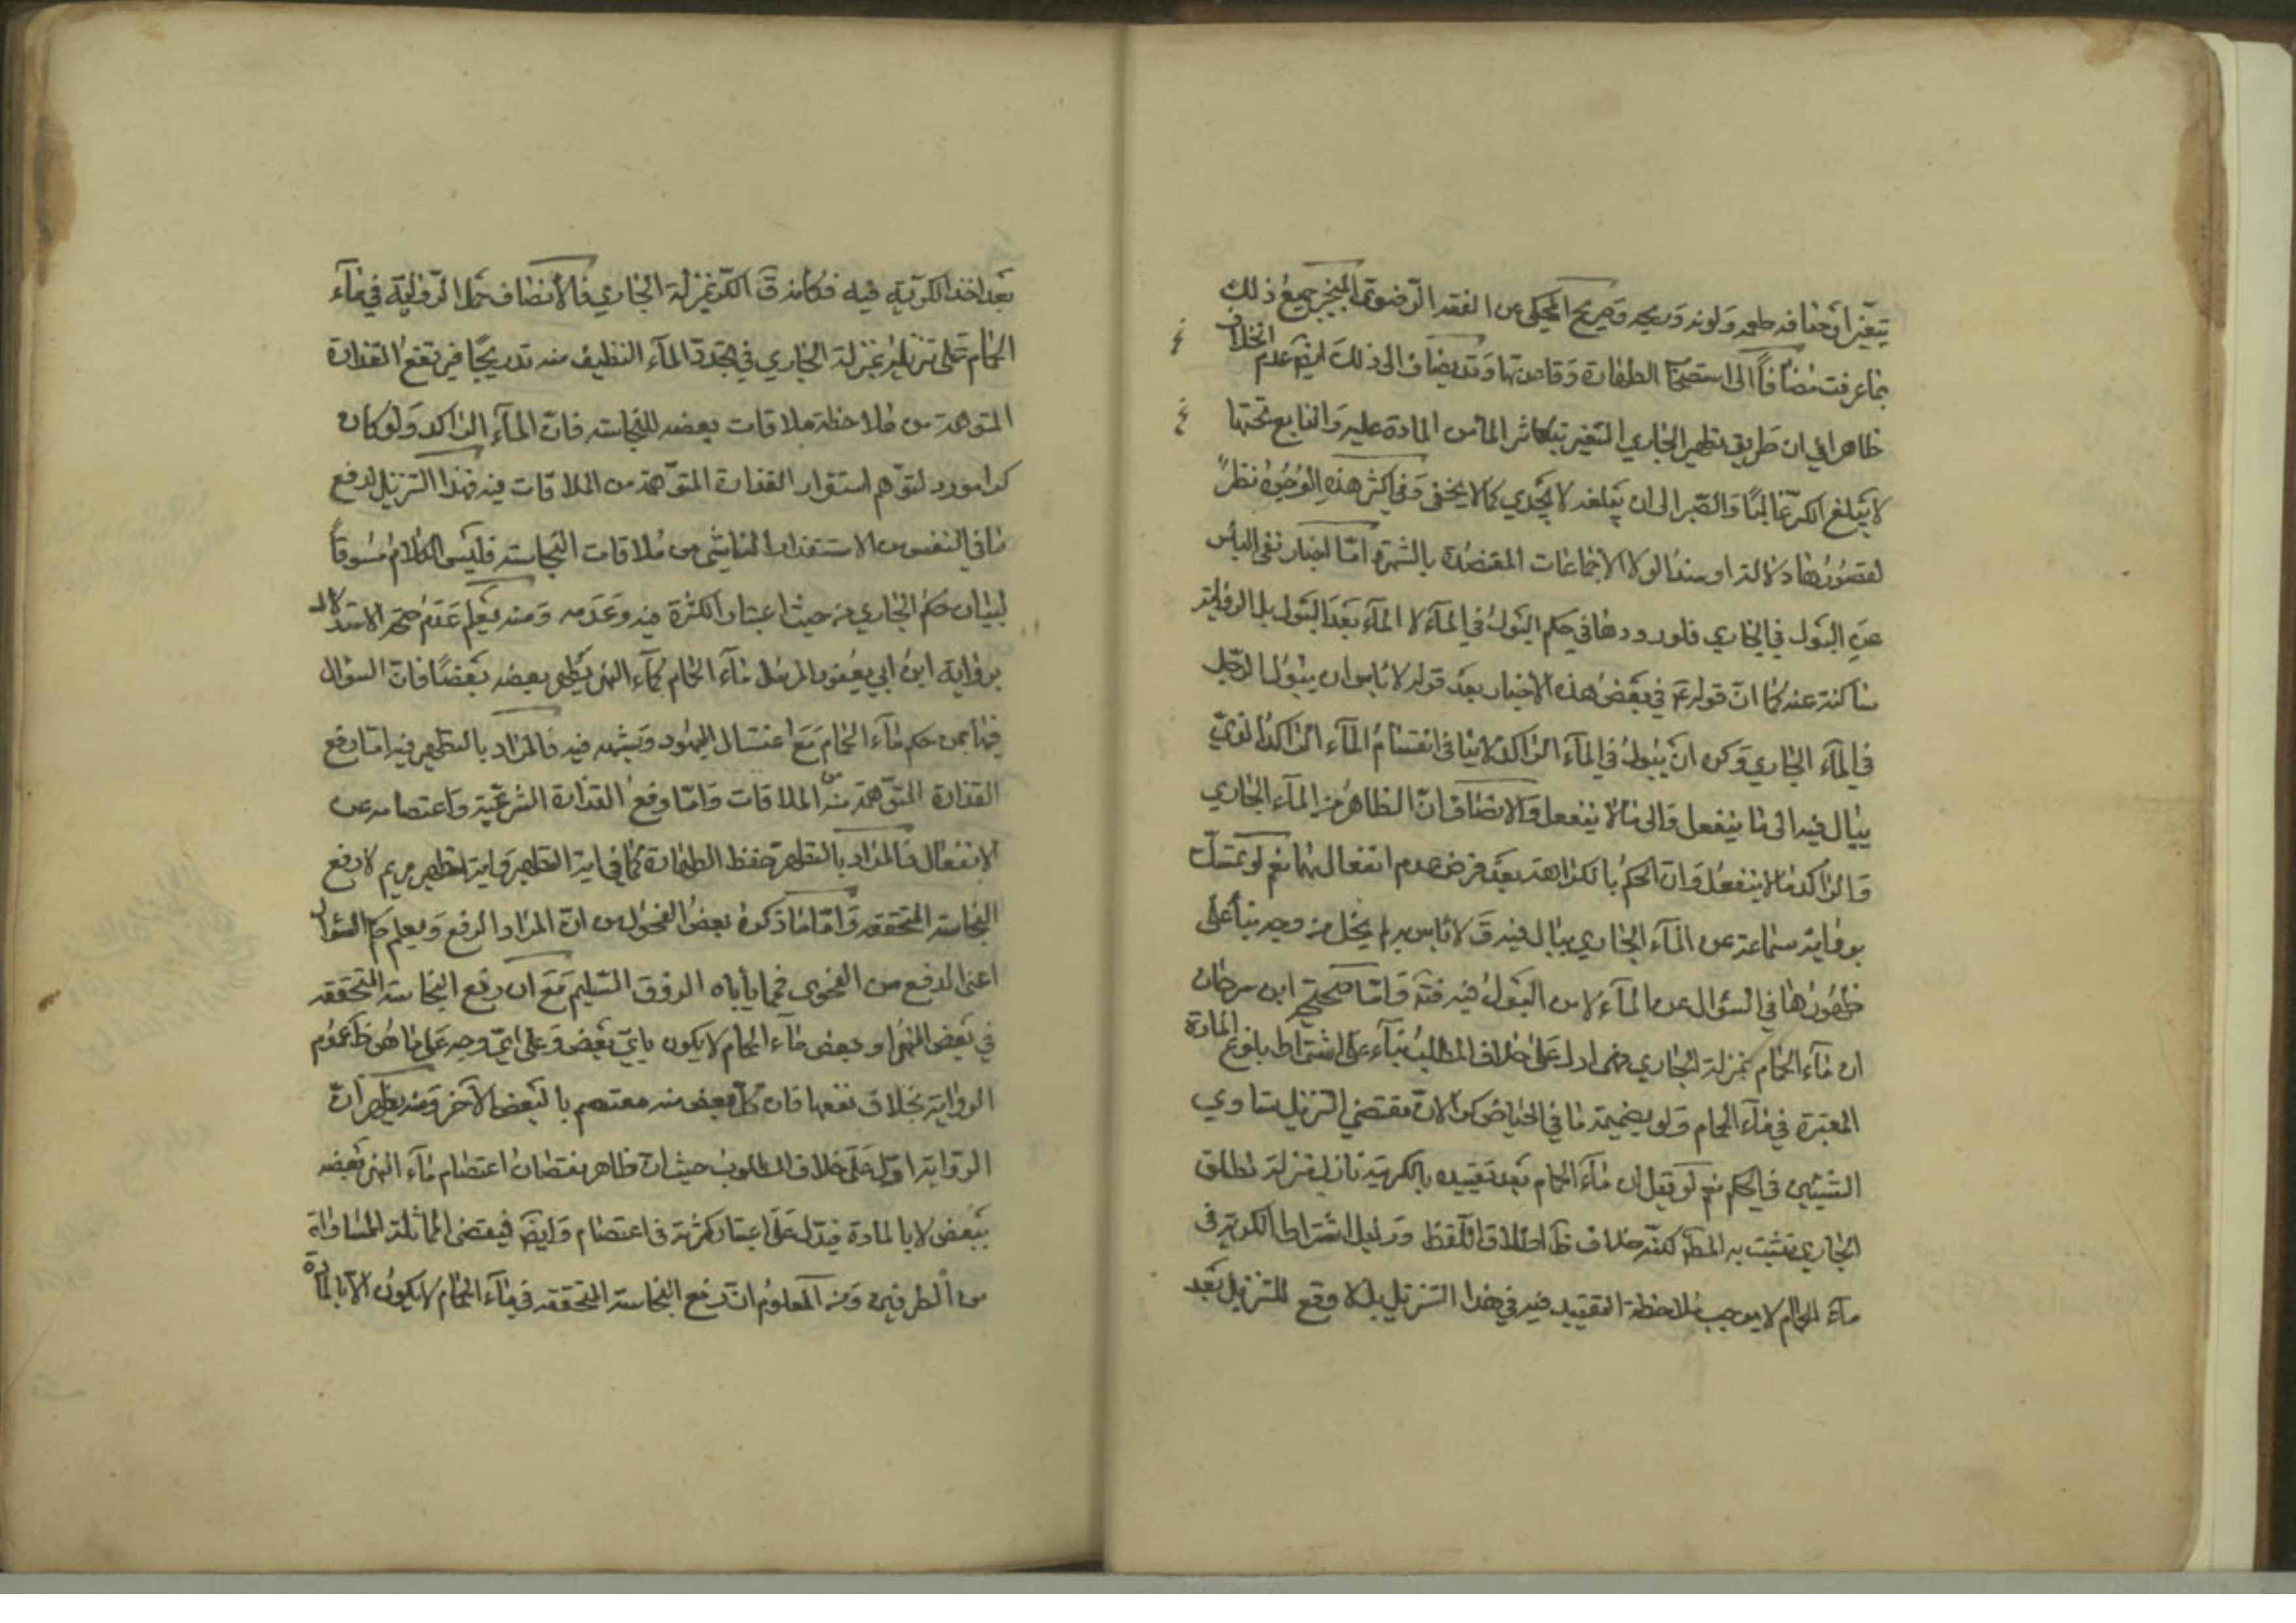 يتغير اوصافه طعمه ولونه وريحه وصريح المحكى عن الفقه الرضوى المنجبر جميع ذلك
بما عرفت مضافاً الى استصحاب الطهارة وقاعدتها وقد يضاف الى ذلك ايضا عدم الخلاف
ظاهرا في ان طريق تطهير الجاري المتغير تكاثر الماء من المادة عليه والنابع تحتها
لا يبلغ الكر غالبًا والصبر الى ان يبلغه لا يجدي كما لا يخفى وفي اكثر هذه الوجوه نظرٌ
لقصورها دلالة او سندا لولا الاجماعات المعتضدة بالشهرة امّا اخبار نفى الباس
عن البول في الجاري فلورودها في حكم البول في الماء لا الماء بعد البول بل الرواية
ساكتة عنه كما انّ قوله ع في بعض هذه الاخبار بعد قوله لا باس ان يبول الرجل
في الماء الجاري وكره انْ يبول في الماء الراكد لا ينافى انقسام الماء الراكد الذي
يبال فيه الى ما ينفعل والى ما لا ينفعل والانصاف انّ الظاهر من الماء الجاري
والراكد ما لا ينفعل وان الحكم بالكراهة بعد فرض عدم انفعالهما نعم لو تمسك
برواية سماعة عن الماء الجاري يبال فيه ق لا باس به لم يخل من وجه بناً على
ظهورها في السؤال عن الماء لا من البول فيه فتـ وامّا صحيحة ابن سرحان
ان ماء الحمام بمنزلة الجاري فهى ادل على خلاف المطلب بناء على اشتراط بلوغ المادة
المعتبرة في ماء الحمام ولو بضميمة ما في الحياض كرا لانّ مقتضى التنزيل تساوي
الشيئين في الحكم نعم لو قيل ان ماء الحمام بعد تقييده بالكرية نازل منزلة مطلق
الجاري تثبت به المط لكنّه خلاف ظ اطلاق اللفظ ودليل اشتراط الكرية في
ماء الحمام لا يوجب ملاحظة التقييد فيه في هذا التنزيل بل لا وقع للتنزيل بعد
بعد اخذ الكرية فيه فكانه ق الكر بمنزلة الجاري فالانصاف حمل الرواية في ماء
الحمام على تنزيله بمنزلة الجاري في تجدد الماء النظيف منه تدريجًا فيرتفع القذارة
المتوهمة من ملاحظة ملاقات بعضه للنجاسة فانّ الماء الراكد ولو كان
كرا مورد لتوهم استقرار القذارة المتوهمة من الملاقات فيه فهذا التنزيل لدفع
ما في النفس من الاستقذار الناشى من ملاقات النجاسة فليس الكلام مسوقاً
لبيان حكم الجاري من حيث اعتبار الكثرة فيه وعدمه ومنه يعلم عدم صحة الاستدلال
برواية ابن ابي يعفور المرسل ماء الحمام كماء النهر يطهر بعضه بعضًا فانّ السؤال
فيها عن حكم ماء الحمام مع اغتسال اليهود وشبهه فيه فالمراد بالتطهير فيه امّا رفع
القذارة المتوهمة من الملاقات وامّا دفع القذارة الشرعية واعتصامه عن
الانفعال فالمراد بالتطهير حفظ الطهارة كما في اية التطهير واية تطهير مريم لا رفع
النجاسة المتحققة وامّا ما ذكره بعض الفحول من انّ المراد الرفع ويعلم حكم السؤال
اعنى الدفع من الفحوى فمما ياباه الذوق السليم مع ان رفع النجاسة المتحققة
في بعض النهر او بعض ماء الحمام لا يكون باىّ بعض وعلى اىّ وجه على ما هو ظ عموم
الرواية بخلاف دفعها فان كلّ بعض منه معتصم بالبعض الآخر ومنه يظهر انّ
الرواية ادل على خلاف المطلوب حيث ان ظاهرها اعتصام ماء النهر بعضه
ببعض لا بالمادة فيدل على اعتبار كثرته في اعتصام وايض فمقتضى المماثلة المساواة
من الطرفين ومن المعلوم انّ رفع النجاسة المتحققة في ماء الحمام لا يكون الا بالمادة